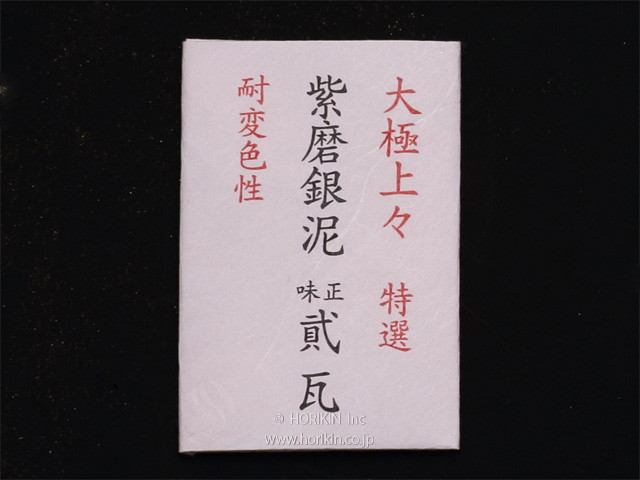 大極上々 特選
紫磨銀泥 正味 貳瓦
耐変色性
© HORIKIN Inc
www.horikin.co.jp